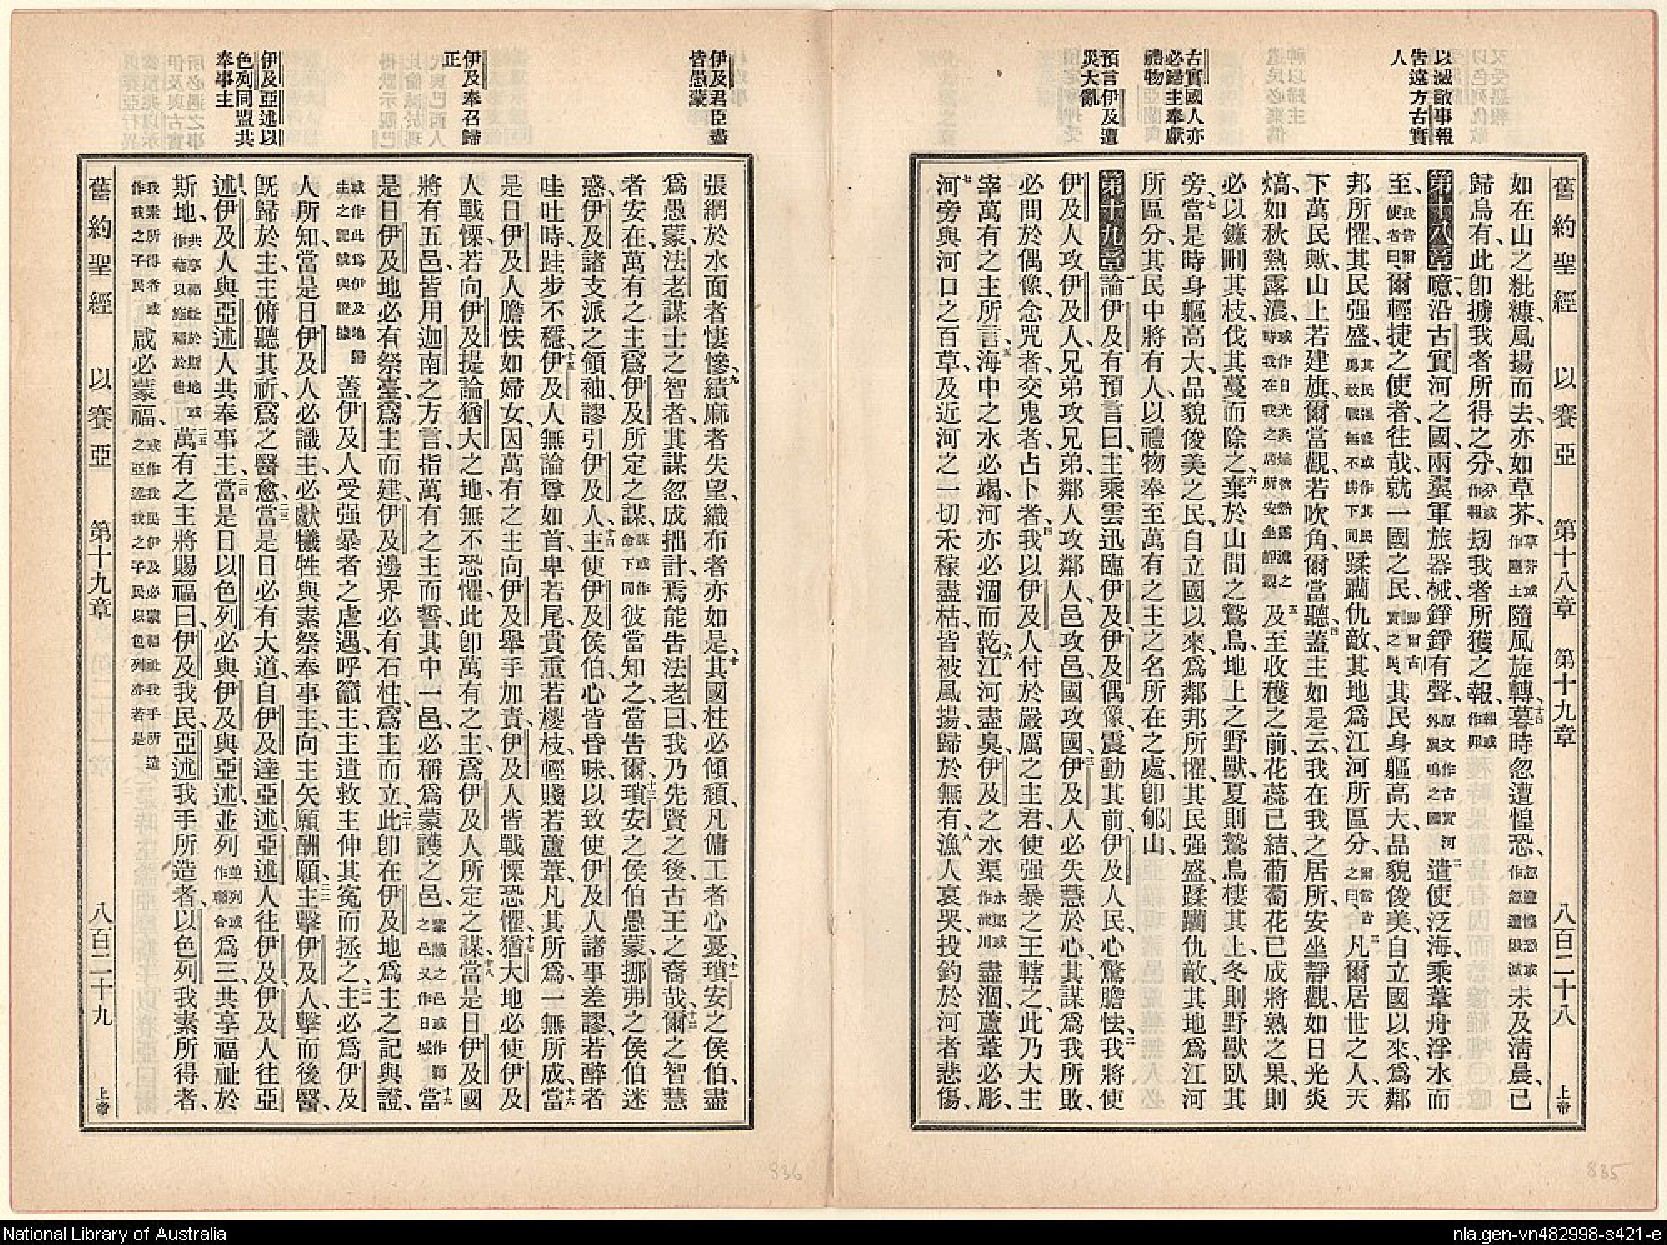 以滅敵事報
告遠方古實
人
古實國人亦
必歸主奉獻
禮物
預言伊及遭
災大亂
舊約聖經 以賽亞 第十八章 第十九章 八百二十八 上帝
如在山之粃糠、風揚而去、亦如草芥、草芥或作塵土隨風旋轉、十四暮時忽遭惶恐、未及清晨、已
歸烏有、此卽擄我者所得之分、分或作報刼我者所獲之報、報或作抑
第十八章 一噫、沿古實河之國、兩翼軍旅器械錚錚有聲、原文作古實河外翼鳴之國二遣使泛海、乘葦舟浮水而
至、我當爾使者曰爾輕捷之使者、往哉、就一國之民、卽爾古實之民其民身軀高大、品貌俊美、自立國以來、爲鄰
邦所懼、其民强盛、蹂躪仇敵、其地爲江河所區分、爾當告之曰三凡爾居世之人、天
下萬民歟、山上若建旗、爾當觀、若吹角、爾當聽、四蓋主如是云、我在我之居所、安坐靜觀、如日光炎
熇、如秋熟露濃、五及至收穫之前、花蕊已結、葡萄花已成將熟之果、則
必以鐮刪其枝、伐其蔓而除之、六棄於山間之鷙鳥、地上之野獸、夏則鷙鳥棲其上、冬則野獸臥其
旁、七當是時身軀高大、品貌俊美之民、自立國以來、爲鄰邦所懼、其民强盛、蹂躪仇敵、其地爲江河
所區分、其民中將有人、以禮物奉至萬有之主之名所在之處、卽郇山、
第十九章 一論伊及有預言曰、主乘雲迅臨伊及、伊及偶像、震動其前、伊及人民、心驚膽怯、二我將使
伊及人攻伊及人、兄弟攻兄弟、鄰人攻鄰人、邑攻邑、國攻國、三伊及人必失慧於心、其謀爲我所敗、
必問於偶像、念咒者、交鬼者、占卜者、四我以伊及人付於嚴厲之主君、使强暴之王轄之、此乃大主
宰萬有之主所言、五海中之水必竭、河亦必涸而乾、六江河盡臭、伊及之水渠、水渠或作河川盡涸、蘆葦必彫、
七河旁與河口之百草、及近河之一切禾稼盡枯、皆被風揚、歸於無有、八漁人哀哭、投釣於河者悲傷、
伊及君臣盡
皆愚蒙
伊及奉召歸
正
伊及亞述以
色列同盟共
奉事主
張網於水面者悽慘、九績麻者失望、織布者亦如是、十其國柱必傾頹、凡傭工者心憂、十一瑣安之侯伯、盡
爲愚蒙、法老謀士之智者、其謀忽成拙計、焉能告法老曰、我乃先賢之後、古王之裔哉、十二爾之智慧
者安在、萬有之主、爲伊及所定之謀、謀或作命下同彼當知之、當告爾、十三瑣安之侯伯愚蒙、挪弗之侯伯迷
惑、伊及諸支派之領袖、謬引伊及人、十四主使伊及侯伯心皆昏昧、以致使伊及人諸事差謬、若醉者
哇吐時、跬步不穩、十五伊及人無論尊如首、卑若尾、貴重若椶枝、輕賤若蘆葦、凡其所爲、一無所成、十六當
是日、伊及人膽怯如婦女、因萬有之主向伊及舉手加責、伊及人皆戰慄恐懼、十七猶大地必使伊及
人戰慄、若向伊及提論猶大之地、無不恐懼、此卽萬有之主、爲伊及人所定之謀、十八當是日、伊及國
將有五邑、皆用迦南之方言、指萬有之主而誓、其中一邑必稱爲蒙護之邑、十九當
是日伊及地必有祭臺、爲主而建、伊及邊界必有石柱、爲主而立、二十此卽在伊及地爲主之記與證、
或作此爲伊及地歸主之記號與證據蓋伊及人受强暴者之虐遇、呼籲主、主遣救主伸其寃而拯之、二一主必爲伊及
人所知、當是日伊及人必識主、必獻犧牲與素祭奉事主、向主矢願酬願、二二主擊伊及人、擊而後醫、
旣歸於主、主俯聽其祈、爲之醫愈、二三當是日必有大道、自伊及達亞述、亞述人往伊及、伊及人往亞
述、伊及人與亞述人共奉事主、二四當是日以色列必與伊及與亞述並列並列或作聯合爲三、共享福祉於
斯地、咸必蒙福、二五萬有之主將賜福曰、伊及我民、亞述我手所造者、以色列我素所得者、
舊約聖經 以賽亞 第十九章 八百二十九 上帝
835
836
National Library of Australia
nla.gen-vn482998-s421-e